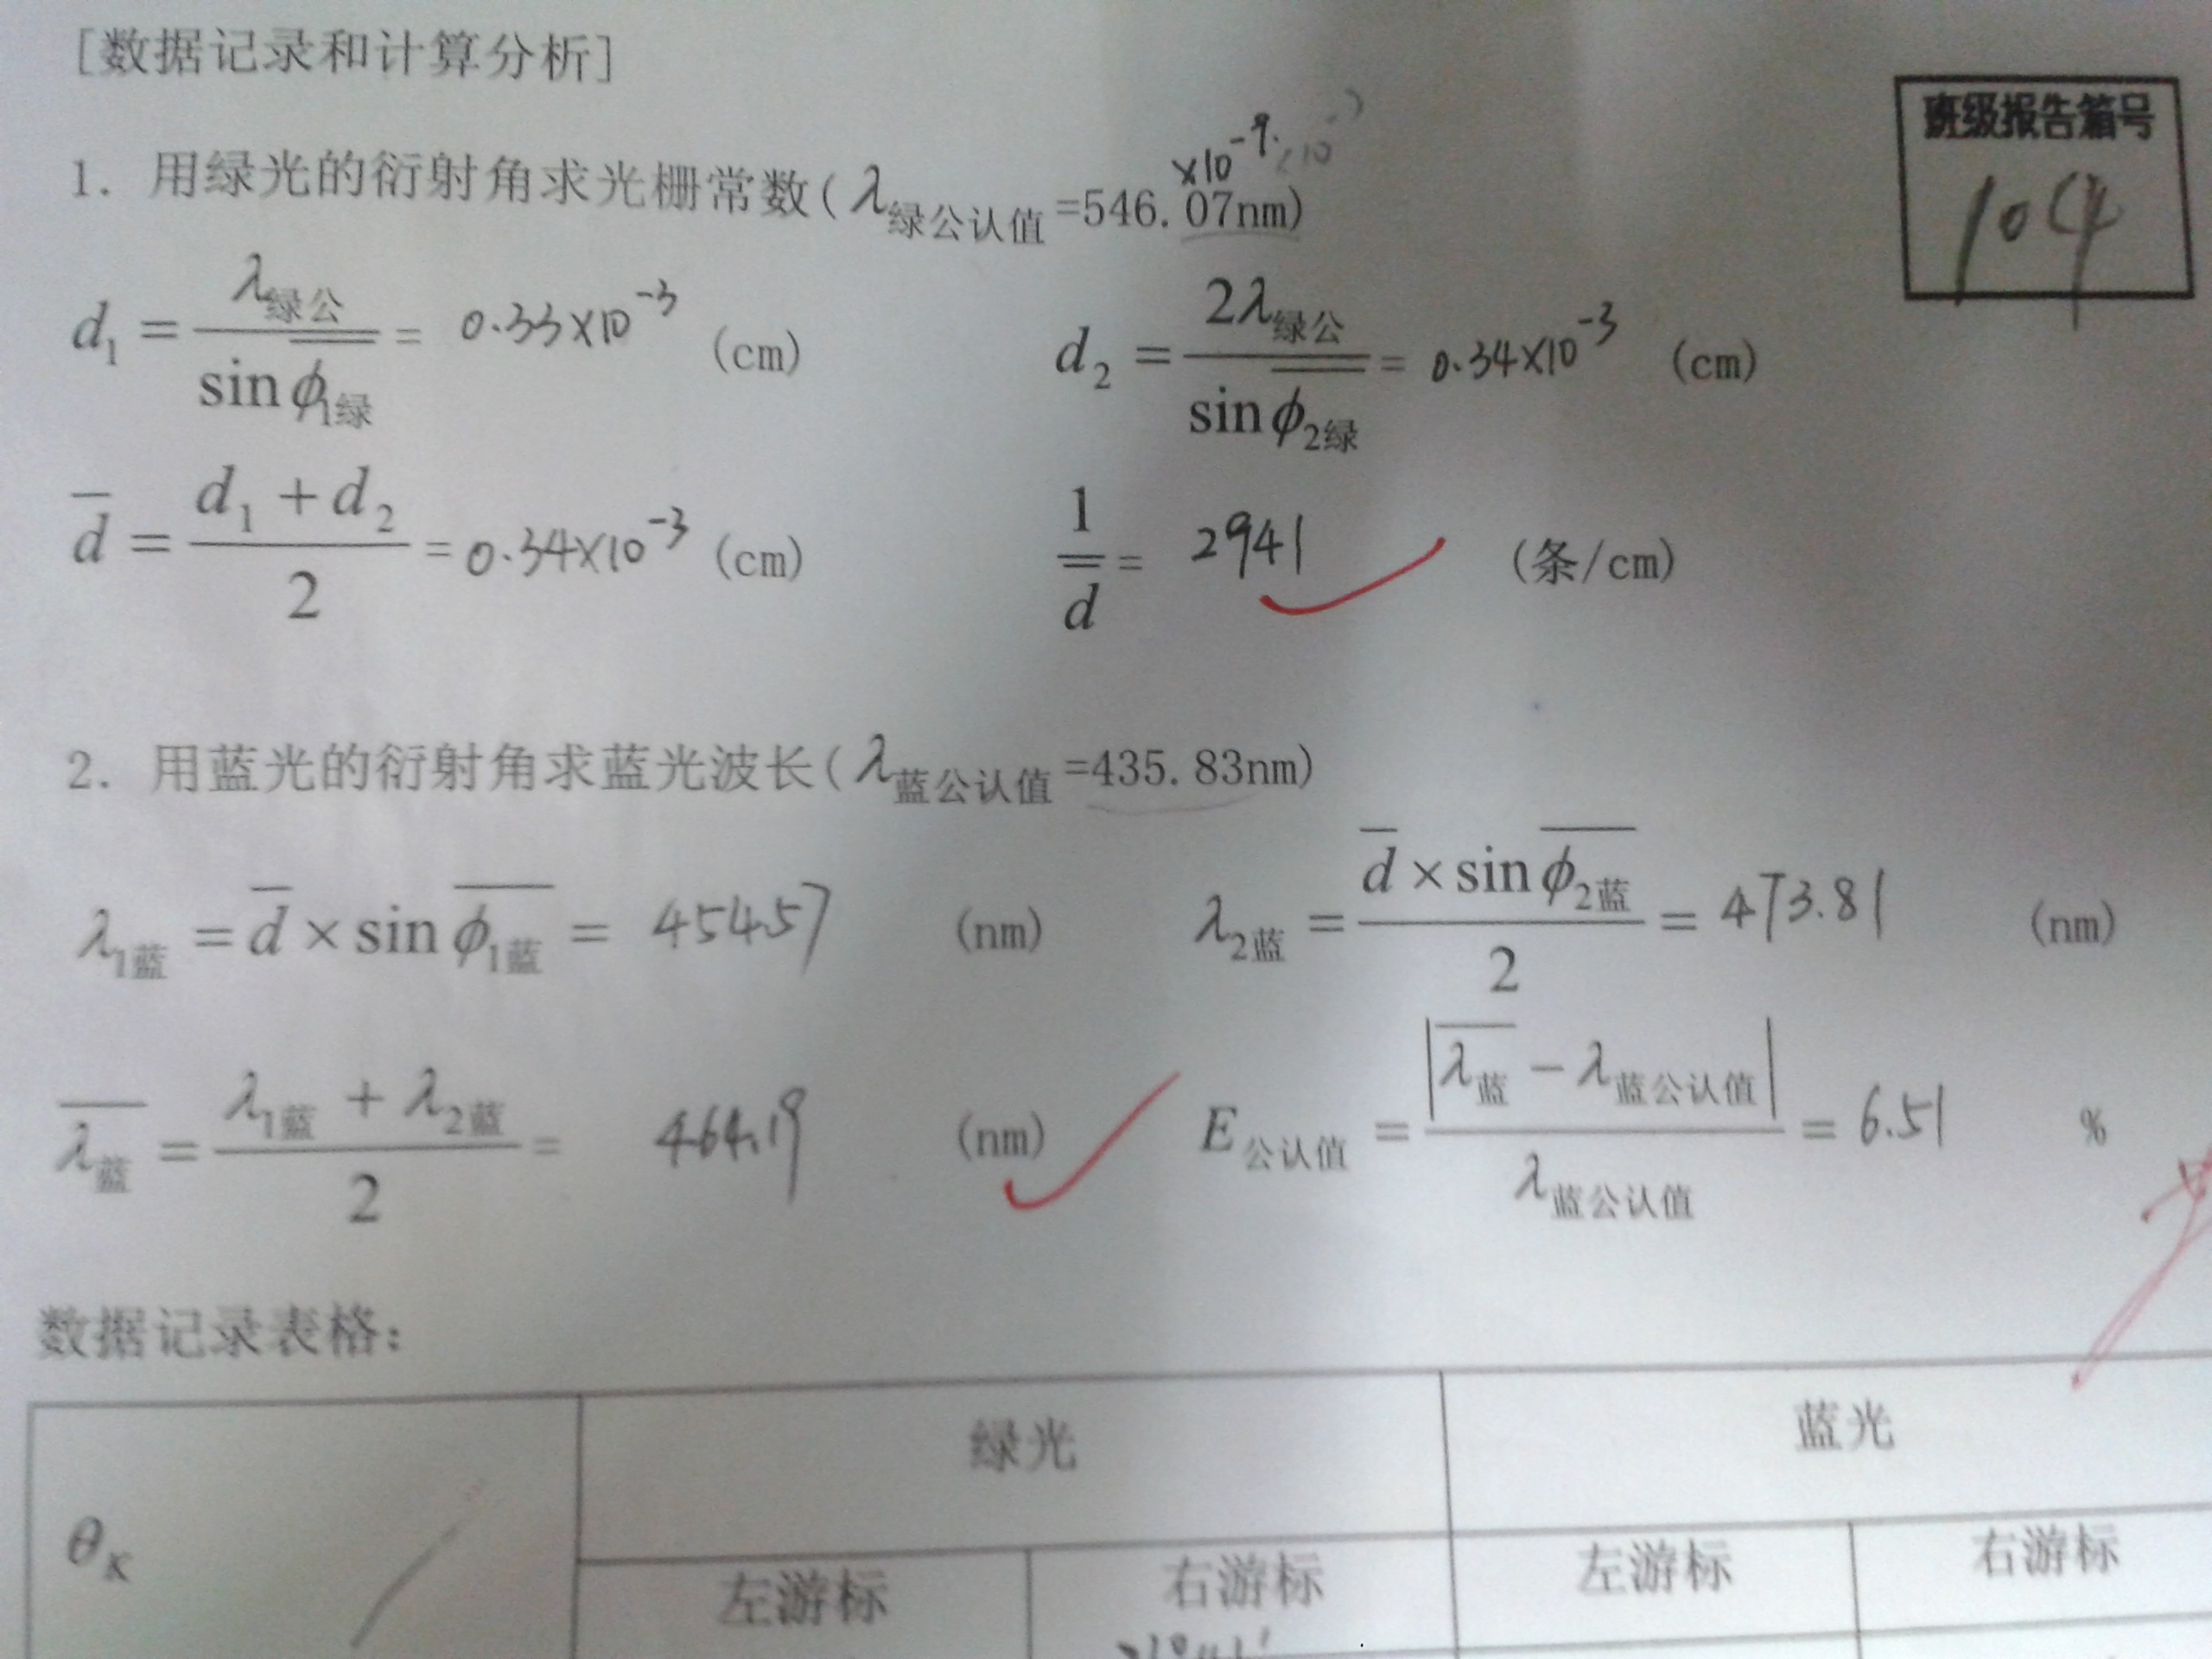 [数据记录和计算分析]
班级报告箱号
104
×10⁻⁹
1. 用绿光的衍射角求光栅常数(λ绿公认值=546.07nm)
d₁ = λ绿公 / sin φ̅₁绿 = 0.33×10⁻³ (cm)
d₂ = 2λ绿公 / sin φ̅₂绿 = 0.34×10⁻³ (cm)
d̅ = (d₁ + d₂) / 2 = 0.34×10⁻³ (cm)
1 / d̅ = 2941 (条/cm)
2. 用蓝光的衍射角求蓝光波长(λ蓝公认值=435.83nm)
λ₁蓝 = d̅ × sin φ̅₁蓝 = 454.57 (nm)
λ₂蓝 = d̅ × sin φ̅₂蓝 / 2 = 473.81 (nm)
λ̅蓝 = (λ₁蓝 + λ₂蓝) / 2 = 464.19 (nm)
E公认值 = |λ̅蓝 − λ蓝公认值| / λ蓝公认值 = 6.51 %
数据记录表格:
绿光 蓝光
θK
左游标 右游标 左游标 右游标